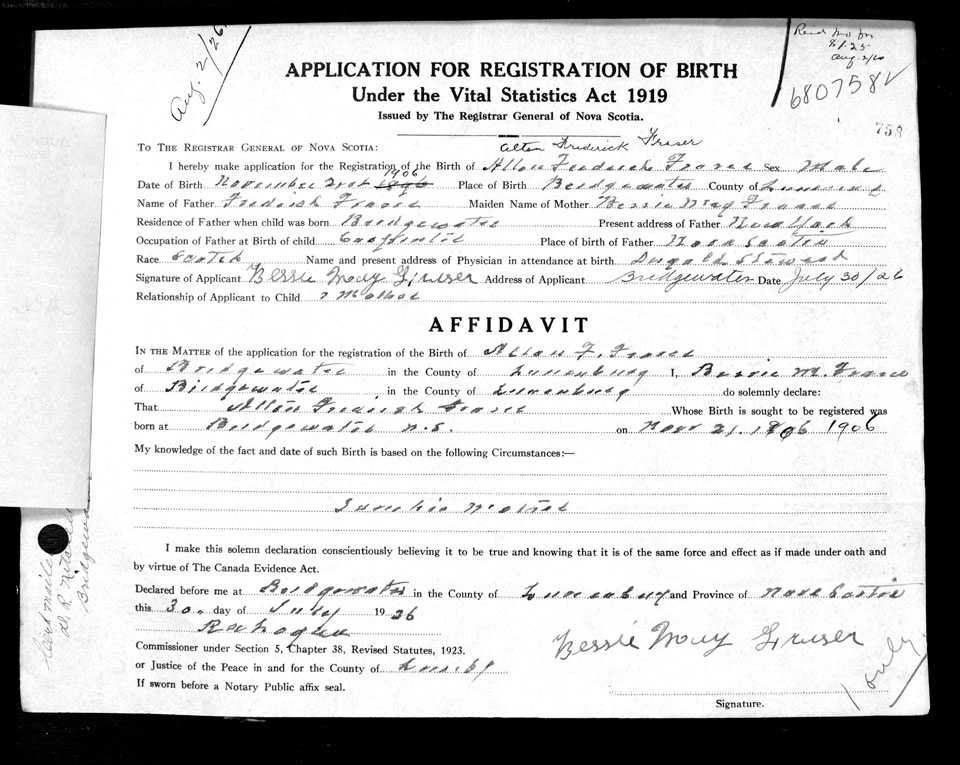 Aug. 2/26
$1.25
Aug 2/26
6807582
758
APPLICATION FOR REGISTRATION OF BIRTH
Under the Vital Statistics Act 1919
Issued by The Registrar General of Nova Scotia.
Alton Frederick Fraser
TO THE REGISTRAR GENERAL OF NOVA SCOTIA:
1906
I hereby make application for the Registration of the Birth of Allon Frederick Fraser Sex Male
Date of Birth November 21st 1896 Place of Birth Bridgewater County of Lunenburg
Name of Father Frederick Fraser Maiden Name of Mother Bessie May Fraser
Residence of Father when child was born Bridgewater Present address of Father New York
Occupation of Father at Birth of child Carpenter Place of birth of Father Nova Scotia
Race Scotch Name and present address of Physician in attendance at birth Dugald Steward
Signature of Applicant Bessie May Fraser Address of Applicant Bridgewater Date July 30/26
Relationship of Applicant to Child Mother
AFFIDAVIT
IN THE MATTER of the application for the registration of the Birth of Allan F. Fraser
of Bridgewater in the County of Lunenburg I, Bessie M. Fraser
of Bridgewater in the County of Lunenburg do solemnly declare:
That Allon Frederick Fraser Whose Birth is sought to be registered was
born at Bridgewater N.S. on Novr 21. 1906 1906
My knowledge of the fact and date of such Birth is based on the following Circumstances:—
I am his Mother
I make this solemn declaration conscientiously believing it to be true and knowing that it is of the same force and effect as if made under oath and
by virtue of The Canada Evidence Act.
Declared before me at Bridgewater in the County of Lunenburg and Province of Nova Scotia
this 30. day of July 1936
Commissioner under Section 5, Chapter 38, Revised Statutes, 1923.
or Justice of the Peace in and for the County of
If sworn before a Notary Public affix seal.
Bessie May Fraser
Signature.
1 only
Bridgewater